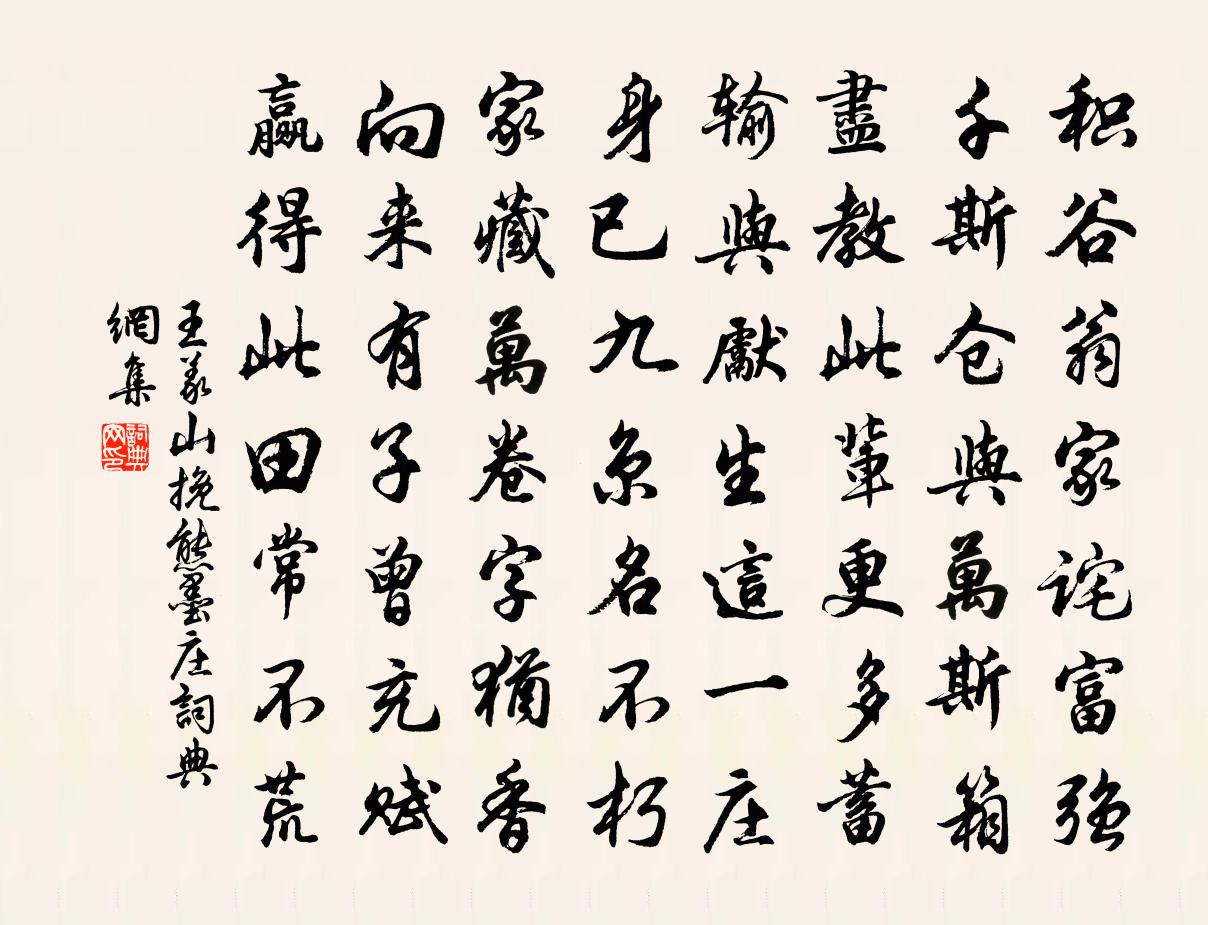 积谷翁家詫富強
千斯仓與萬斯箱
盡教此輩更多蓄
输與獻生這一庄
身已九京名不朽
家藏萬卷字猶香
向来有子曾充赋
赢得此田常不荒
王義山挽熊墨庄詞典
網集
詞典網印